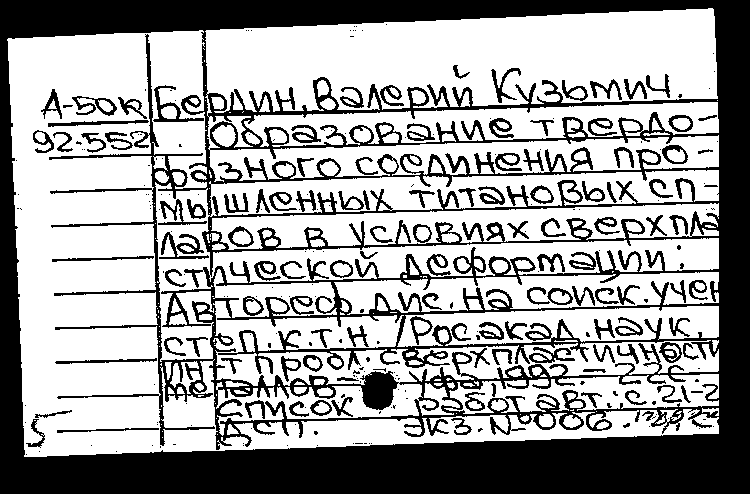 А-50к Бердин, Валерий Кузьмич.
92-552 Образование твердо-
фазного соединения про-
мышленных титановых сп-
лавов в условиях сверхпла
стической деформации:
Автореф. дис. на соиск. учен
степ. к.т.н. /Рос. акад. наук,
Ин-т пробл. сверхпластичности
металлов.- Уфа, 1992.- 22с.
Список работ авт.: с. 21-2
5 ДСП. Экз. № 006.